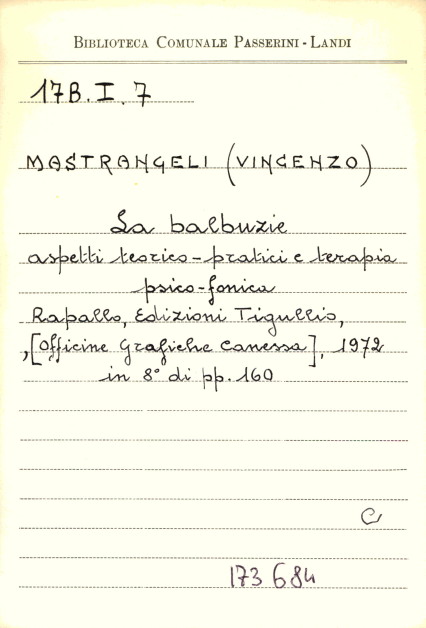 BIBLIOTECA COMUNALE PASSERINI - LANDI
17B. I. 7
MASTRANGELI (VINCENZO)
La balbuzie
aspetti teorico-pratici e terapia
psico-fonica
Rapallo, Edizioni Tigullio,
,[Officine Grafiche Canessa], 1972
in 8° di pp. 160
C
173684